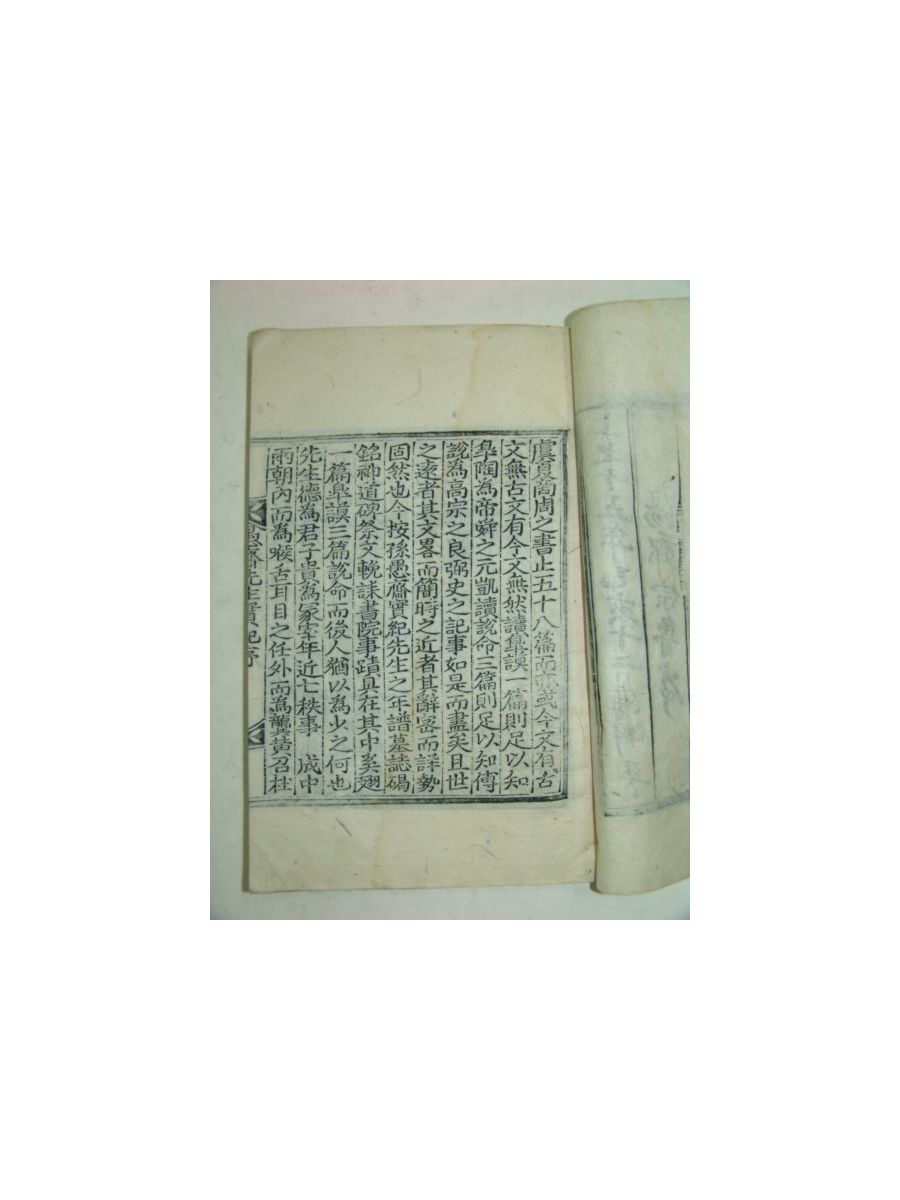 虞夏商周之書止五十八篇而亦或今文有古
文無古文有今文無然讀臯謨一篇則足以知
臯陶為帝舜之元凱讀說命三篇則足以知傅
說為高宗之良弼史之記事如是而盡矣且世
之遠者其文畧而簡時之近者其辭密而詳勢
固然也今按孫愚齋實紀先生之年譜墓誌碣
銘神道碑祭文輓誄書院事蹟具在其中奚翅
一篇臯謨三篇說命而後人猶以為少之何也
先生德為君子貴為冢宰年近七秩事 成中
兩朝內而為喉舌耳目之任外而為龔黃召杜
愚齋先生實紀序